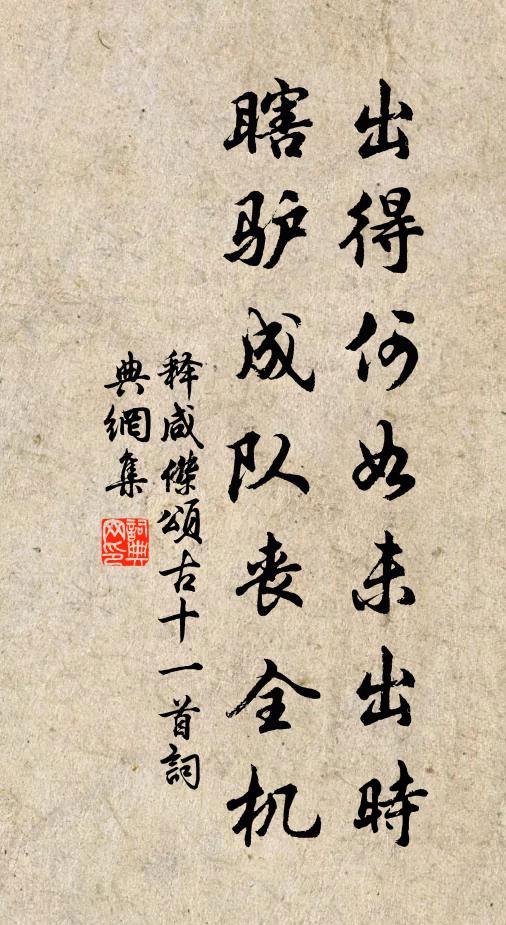 出得何如未出時
瞎驴成队丧全机
释咸傑頌古十一首詞
典網集
詞典網印